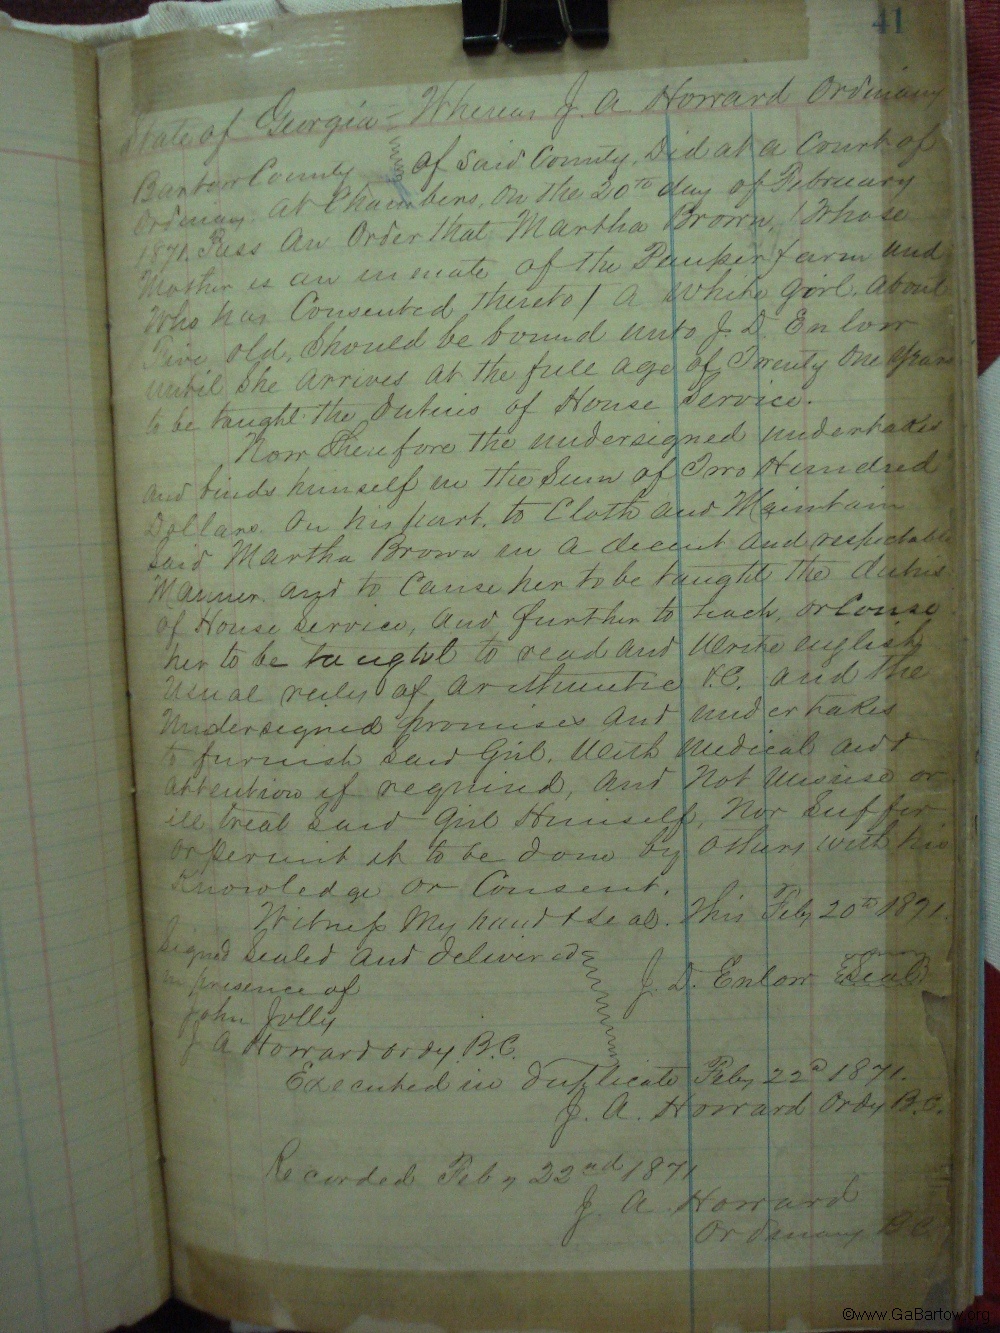 41
State of Georgia Whereas J. A Howard Ordinary
Bartow County of Said County, Did at a Court of
Ordinary at Chambers, on the 20th day of February
1871. Pass an Order that Martha Brown, (Whose
Mother is an inmate of the Pauper farm and
Who has Consented thereto) a White girl, about
Five old, Should be bound unto J. D. Enlow
until She arrives at the full age of Twenty one years
to be taught the Duties of House Service.
Now Therefore the undersigned undertakes
and binds himself in the Sum of Two Hundred
Dollars. On his part, to Cloth and Maintain
Said Martha Brown in a decent and respectable
Manner. and to Cause her to be taught the duties
of House Service, and further to teach, or Couse
her to be taught to read and Write english
Usual of arithmetic &C. and the
Undersigned promises and undertakes
to furnish Said Girl, With Medical aid &
attention if required, and Not Misuse or
ill treat Said Girl Himself, Nor Suffer
or permit it to be done by others with his
Knowledge or Consent.
Witness My hand & Seal. this Feby 20th 1871.
Signed Sealed and delivered
in presence of J. D. Enlow Seal
John Jolly
J A Howard Ordy B.C.
Executed in duplicate Feby 22d 1871.
J. A. Howard Ordy B.C.
Recorded Feby 22nd 1871
J. A Howard
Ordinary B.C.
©www.GaBartow.org